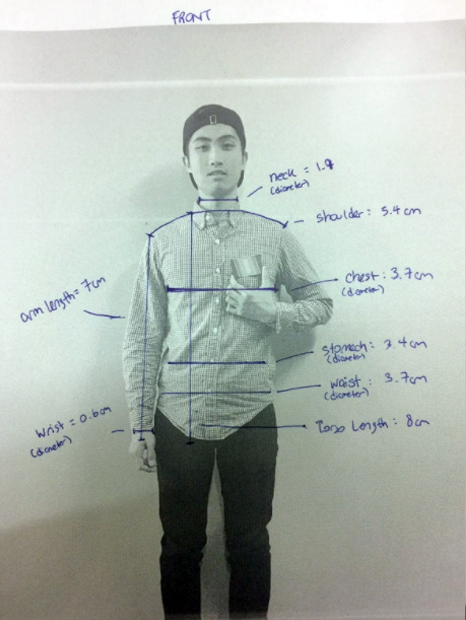 FRONT
neck = 1.9
(diameter)
shoulder: 5.4 cm
chest: 3.7cm
(diameter)
arm length = 7cm
stomach: 3.4cm
(diameter)
waist: 3.7cm
(diameter)
wrist = 0.6cm
(diameter)
Torso Length: 8cm